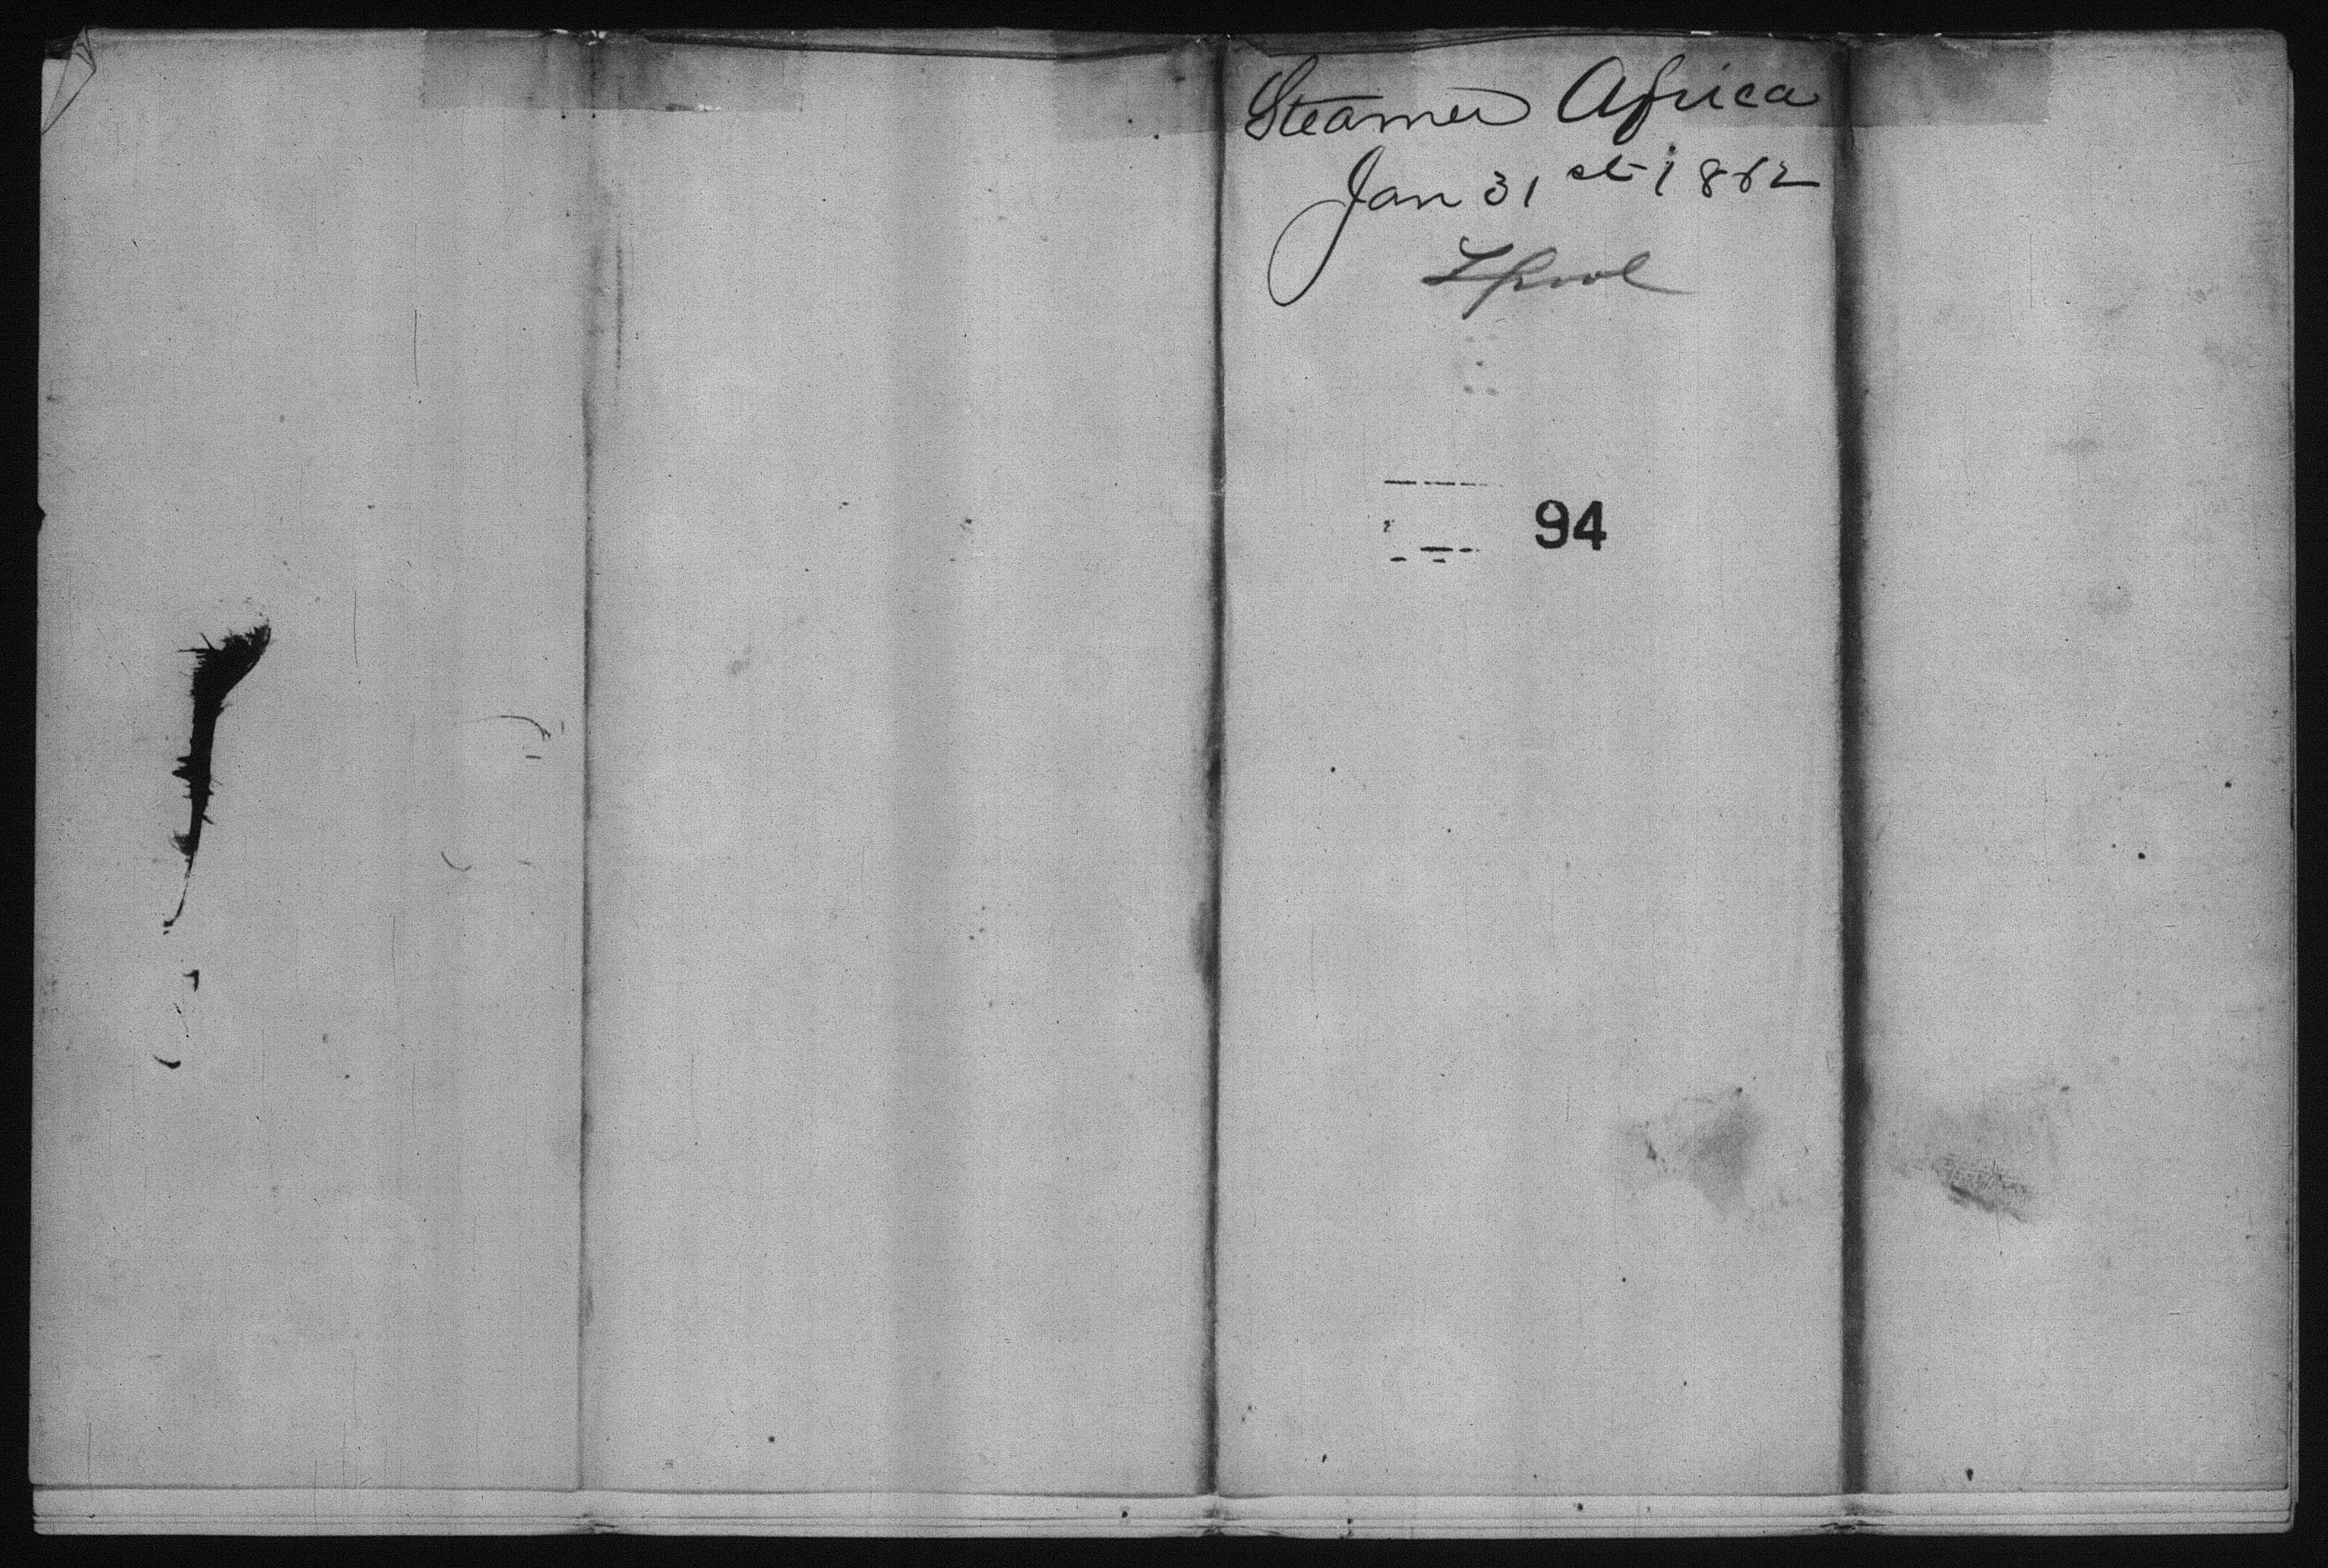 Steamer Africa
Jan 31st 1862
Lpool
94